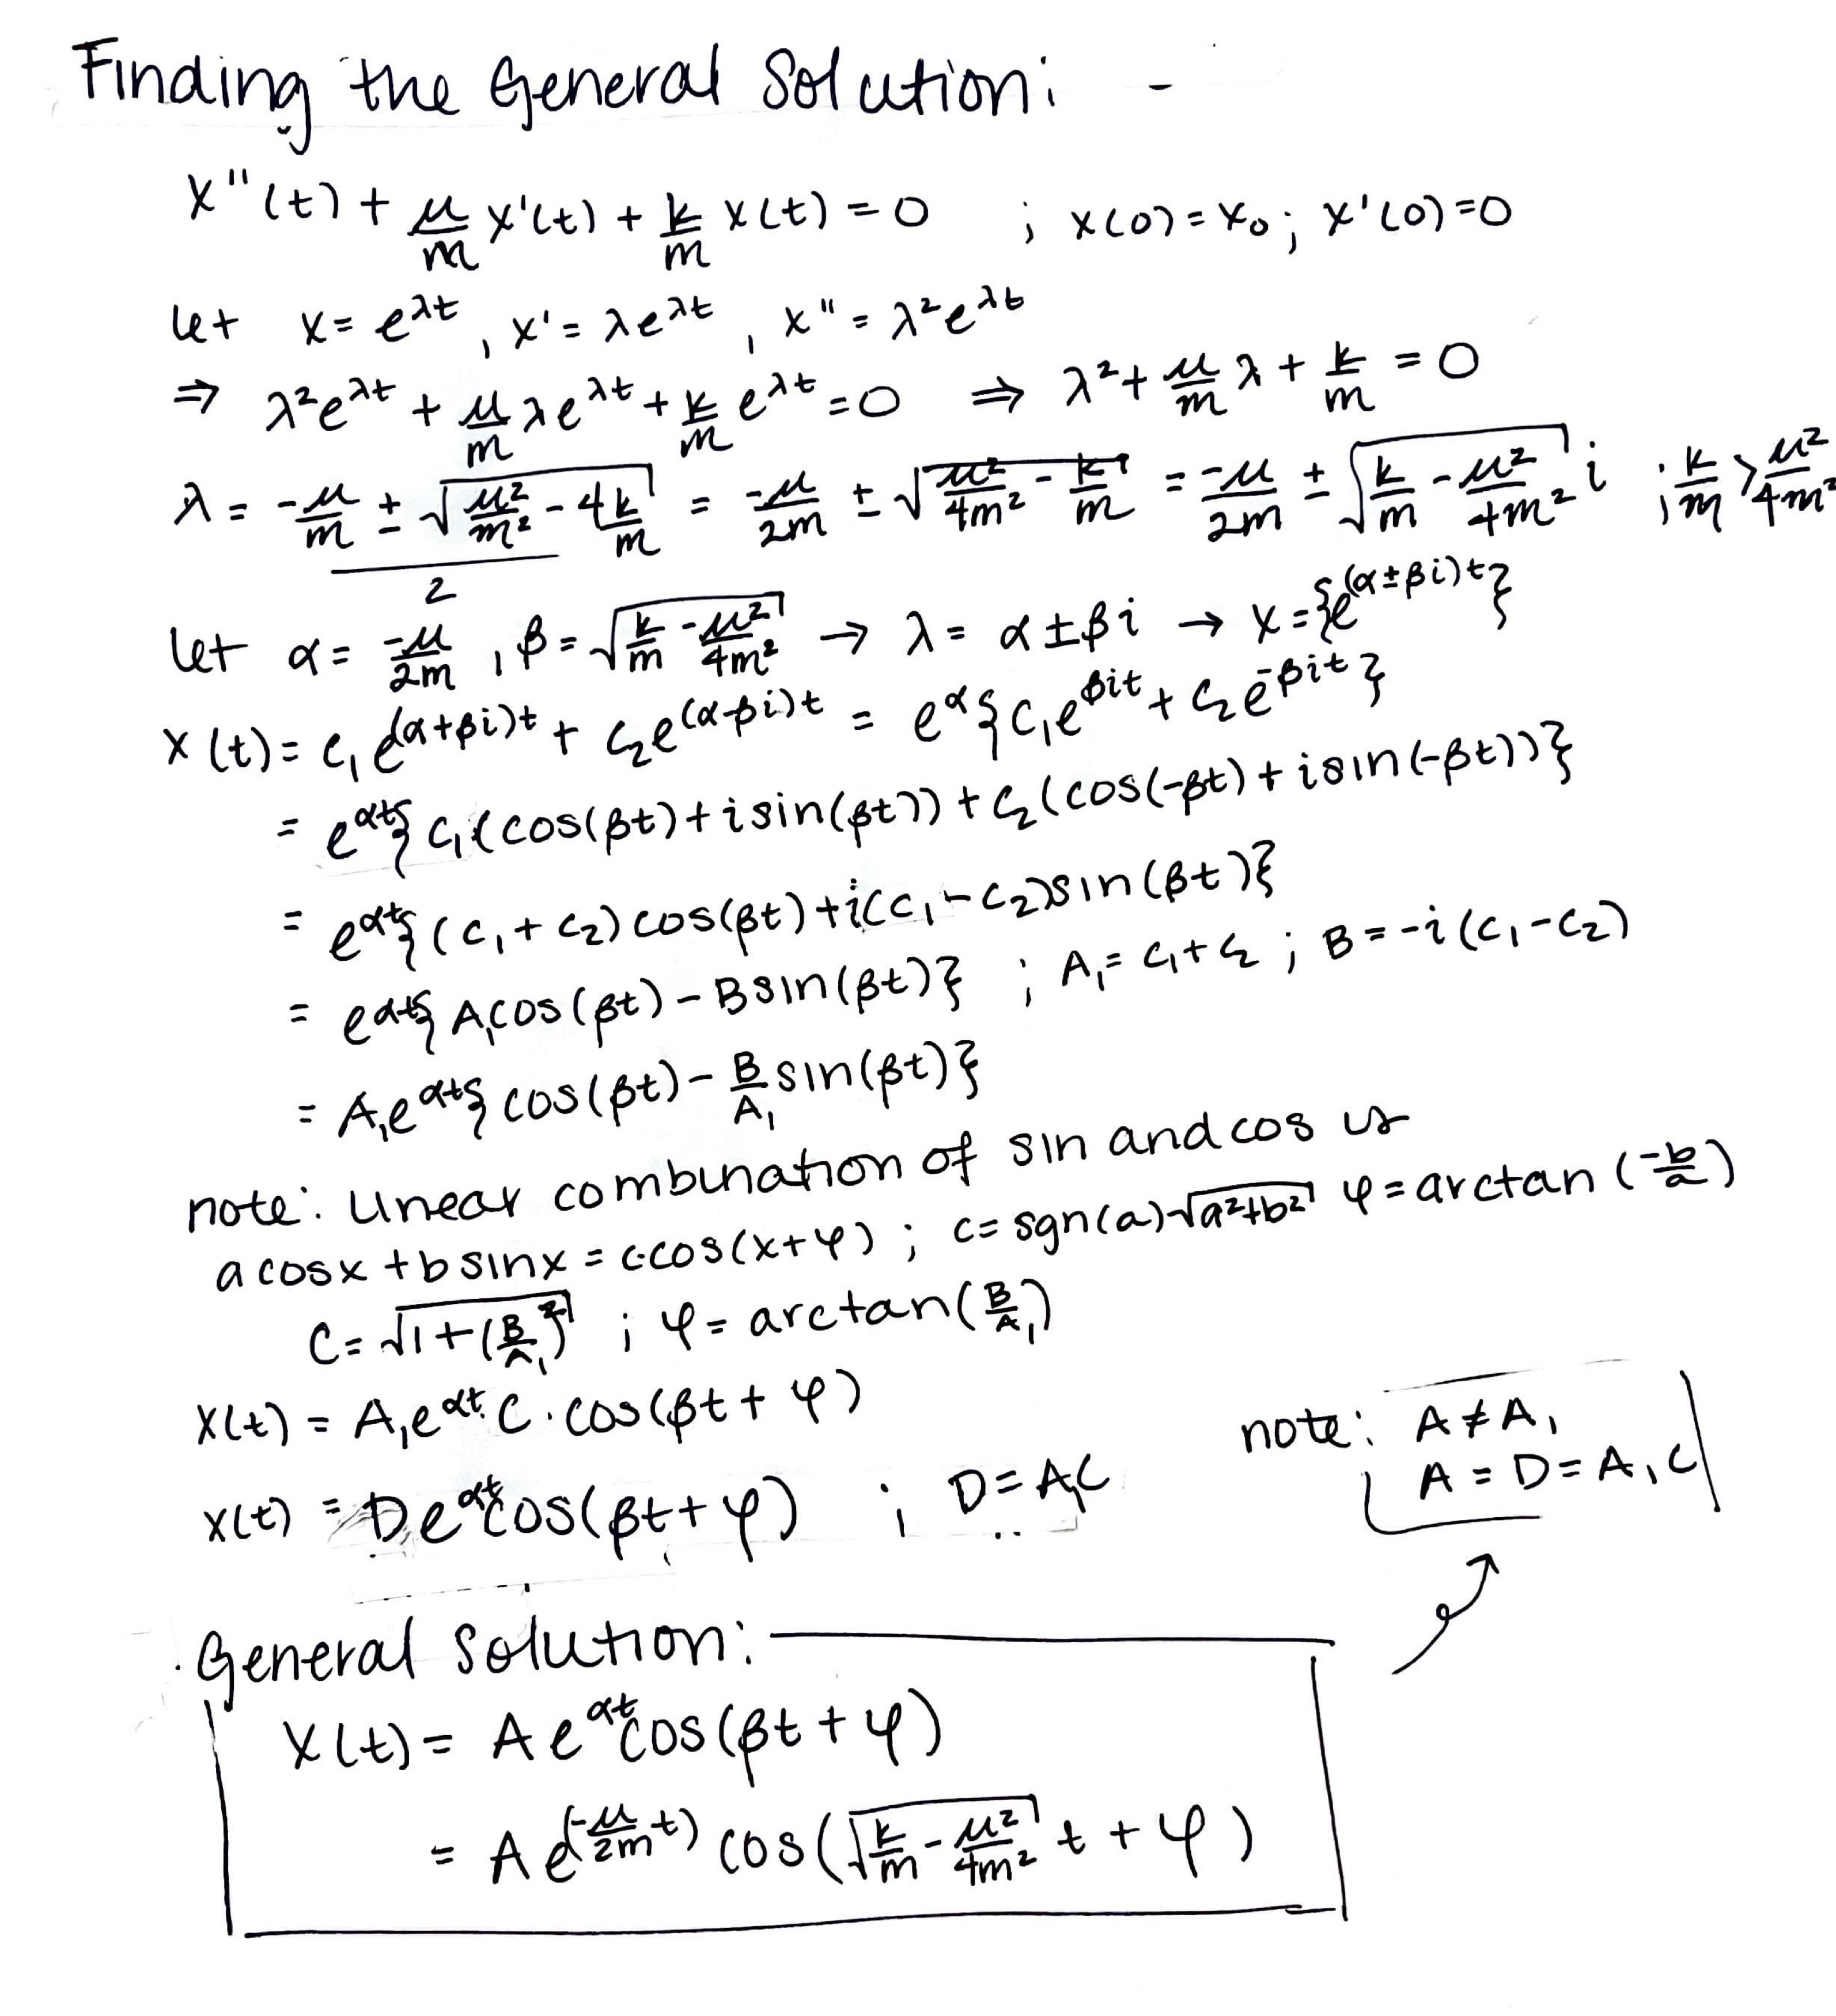 Finding the General Solution:
x''(t) + μ/m x'(t) + k/m x(t) = 0 ; x(0) = x₀ ; x'(0) = 0
let x = e^{λt} , x' = λe^{λt} , x'' = λ²e^{λt}
⇒ λ²e^{λt} + μ/m λe^{λt} + k/m e^{λt} = 0 ⇒ λ² + μ/m λ + k/m = 0
λ = (-μ/m ± √(μ²/m² - 4k/m))/2 = -μ/2m ± √(μ²/4m² - k/m) = -μ/2m ± √(k/m - μ²/4m²) i ; k/m > μ²/4m²
let α = -μ/2m , β = √(k/m - μ²/4m²) → λ = α ± βi → x = {e^{(α±βi)t}}
x(t) = c₁e^{(α+βi)t} + c₂e^{(α-βi)t} = e^α{c₁e^{βit} + c₂e^{-βit}}
= e^{αt}{c₁(cos(βt) + isin(βt)) + c₂(cos(-βt) + isin(-βt))}
= e^{αt}{(c₁+c₂)cos(βt) + i(c₁-c₂)sin(βt)}
= e^{αt}{A₁cos(βt) - Bsin(βt)} ; A₁ = c₁+c₂ ; B = -i(c₁-c₂)
= A₁e^{αt}{cos(βt) - B/A₁ sin(βt)}
note: linear combination of sin and cos is
a cosx + b sinx = c·cos(x+φ) ; c = sgn(a)√(a²+b²) φ = arctan(-b/a)
C = √(1+(B/A₁)²) ; φ = arctan(B/A₁)
x(t) = A₁e^{αt}·C·cos(βt + φ)
x(t) = De^{αt}cos(βt+φ) ; D = A₁C
note: A ≠ A₁
A = D = A₁C
General Solution:
x(t) = Ae^{αt}cos(βt + φ)
= Ae^{(-μ/2m t)} cos(√(k/m - μ²/4m²) t + φ)